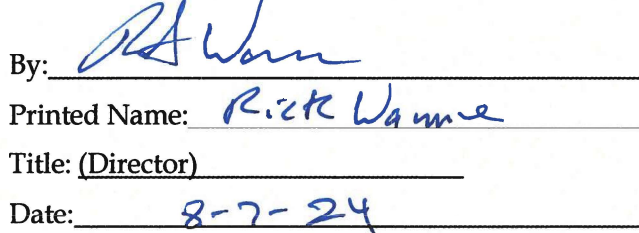 By:
Printed Name: Rick
Title: (Director)
Date: 8-7-24